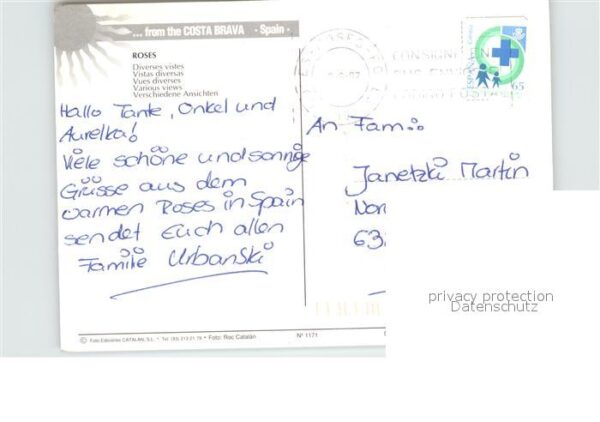 ... from the COSTA BRAVA - Spain -
ROSES
Diverses vistes
Vistas diversas
Vues diverses
Various views
Verschiedene Ansichten
Hallo Tante, Onkel und
Aurelka!
Viele schöne und sonnige
Grüsse aus dem
warmen Roses in Spain
sendet Euch allen
Familie Urbanski
CONSIGNE EN
ESPAÑA
Correos
65
An Fam.:
Janetzki Martin
Nor
63
privacy protection
Datenschutz
© Foto Ediciones CATALAN, S.L. • Tel. (93) 213 21 79 • Foto: Roc Catalán
Nº 1171